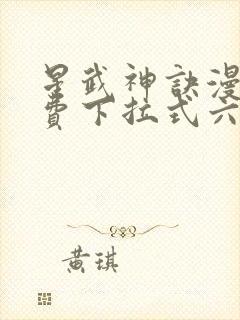 星武神訣漫
費下拉式六
黃琪